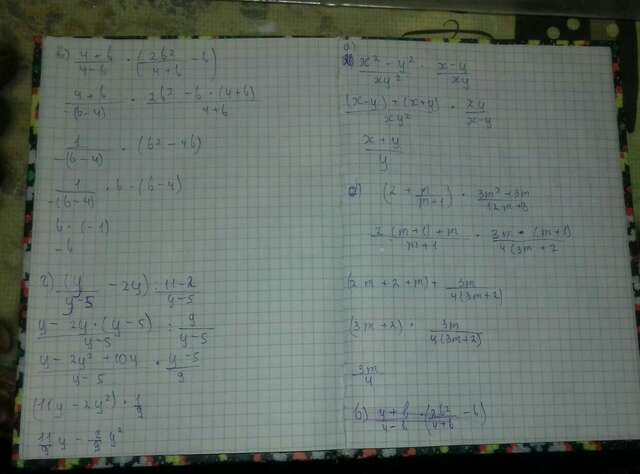 в) (4+b)/(4-b) · ((2b²)/(4+b) - b)
(4+b)/(-(b-4)) · (2b² - b·(4+b))/(4+b)
1/(-(b-4)) · (b² - 4b)
1/(-(b-4)) · b·(b-4)
b·(-1)
-b
г) (y/(y-5) - 2y) : (11-2)/(y-5)
(y - 2y·(y-5))/(y-5) : 9/(y-5)
(y - 2y² + 10y)/(y-5) · (y-5)/9
(11y - 2y²) · 1/9
11/9 y - 2/9 y²
а)
(x² - y²)/(xy²) · (x-y)/(xy)
((x-y)·(x+y))/(xy²) · (xy)/(x-y)
(x+y)/y
(2 + m/(m+1)) · (3m²+3m)/(12m+8)
(2(m+1)+m)/(m+1) · (3m·(m+1))/(4(3m+2
(2m+2+m) · 3m/(4(3m+2))
(3m+2) · 3m/(4(3m+2))
3m/4
(4+b)/(4-b) · ((2b²)/(4+b) - b)